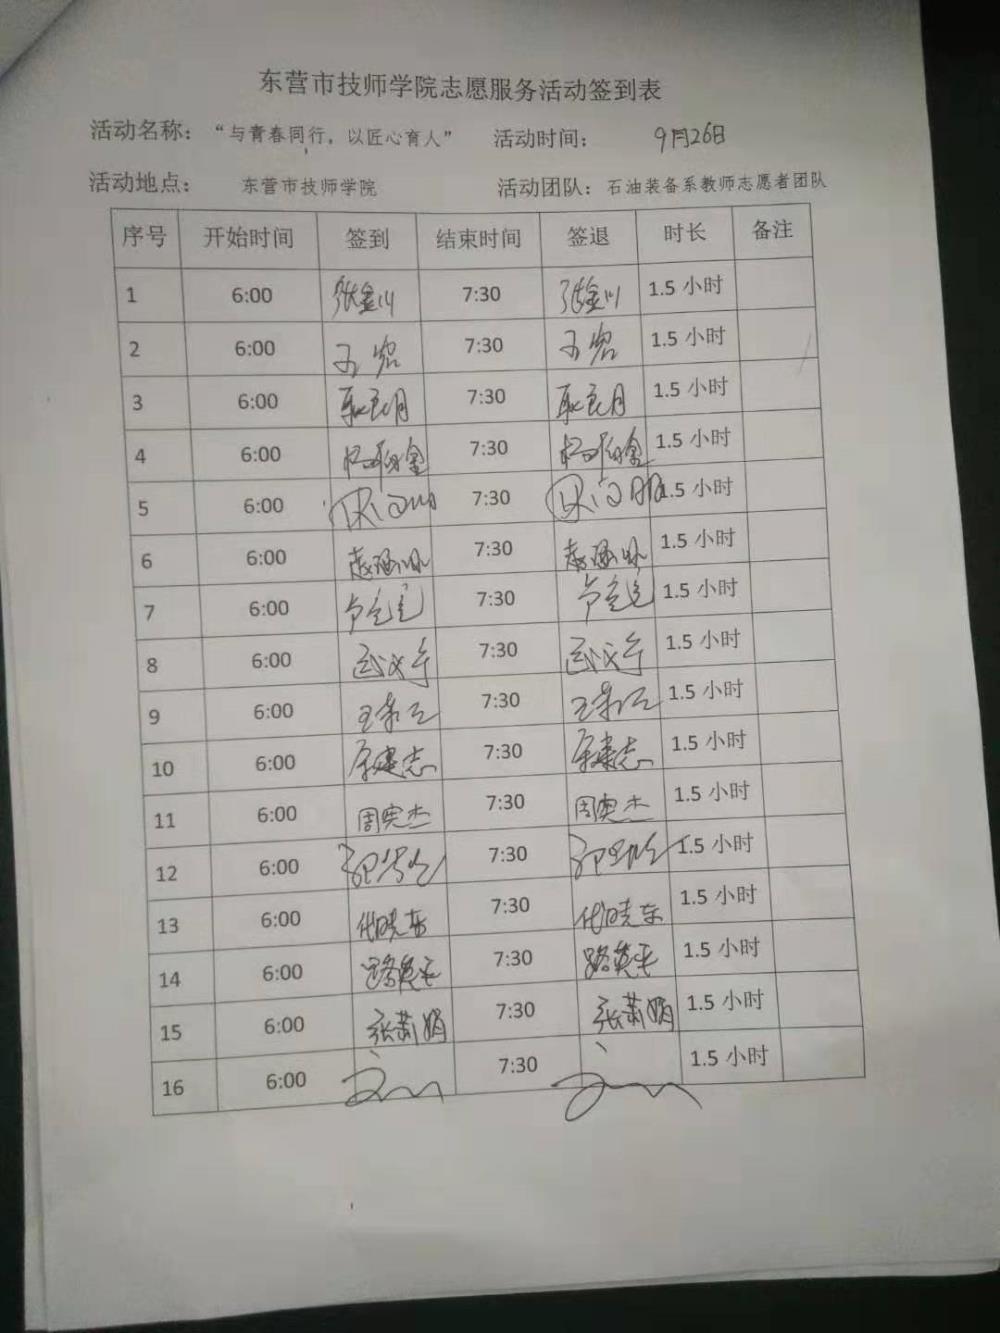 东营市技师学院志愿服务活动签到表
活动名称：“与青春同行，以匠心育人” 活动时间： 9月26日
活动地点： 东营市技师学院 活动团队：石油装备系教师志愿者团队
序号 开始时间 签到 结束时间 签退 时长 备注
1 6:00 张金川 7:30 张金川 1.5 小时
2 6:00 7:30 1.5 小时
3 6:00 耿良月 7:30 耿良月 1.5 小时
4 6:00 7:30 1.5 小时
5 6:00 7:30 1.5 小时
6 6:00 7:30 1.5 小时
7 6:00 7:30 1.5 小时
8 6:00 7:30 1.5 小时
9 6:00 7:30 1.5 小时
10 6:00 7:30 1.5 小时
11 6:00 周宪杰 7:30 周宪杰 1.5 小时
12 6:00 7:30 1.5 小时
13 6:00 代晓东 7:30 代晓东 1.5 小时
14 6:00 路英平 7:30 路英平 1.5 小时
15 6:00 张萧娟 7:30 张萧娟 1.5 小时
16 6:00 7:30 1.5 小时